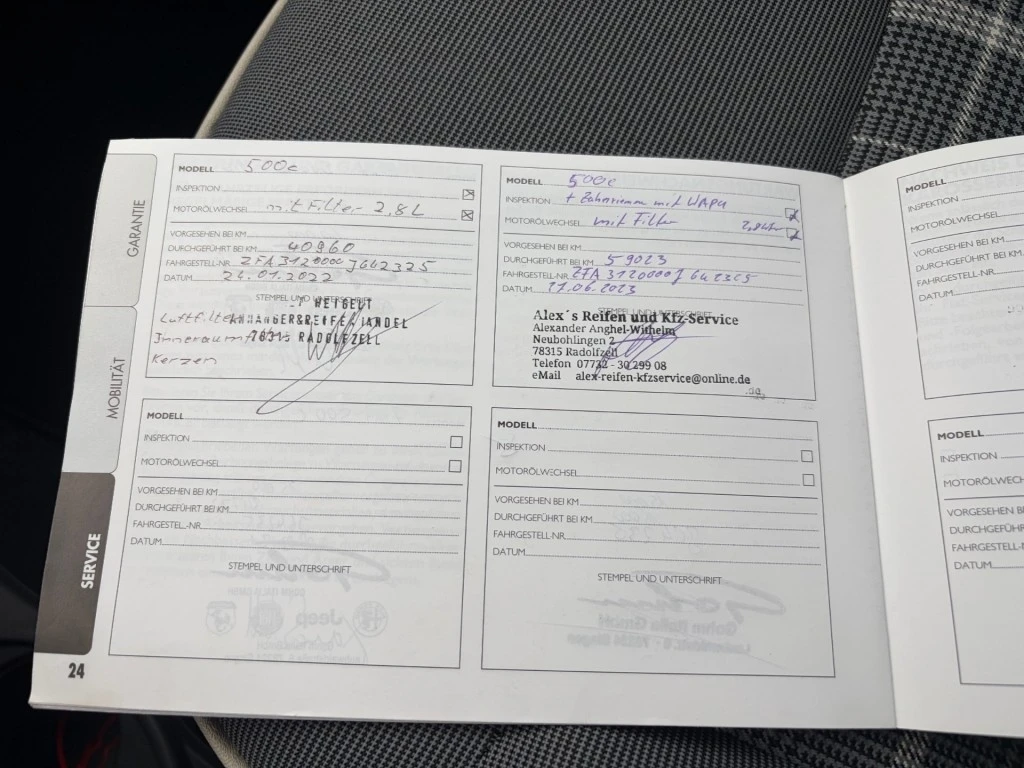 GARANTIE
MOBILITÄT
SERVICE
MODELL 500c
INSPEKTION
MOTORÖLWECHSEL mit Filter 2,8 L
VORGESEHEN BEI KM
DURCHGEFÜHRT BEI KM 40960
FAHRGESTELL-NR. ZFA3120000J642325
DATUM 24.01.2022
STEMPEL UND UNTERSCHRIFT
WEIGELT
Luftfilter ANHÄNGER&REIFENHANDEL
Innenraumfilter 78315 RADOLFZELL
Kerzen
MODELL 500c
INSPEKTION + Zahnriemen mit WAPU
MOTORÖLWECHSEL mit Filter 2,8 Liter
VORGESEHEN BEI KM
DURCHGEFÜHRT BEI KM 59023
FAHRGESTELL-NR. ZFA3120000J642325
DATUM 21.06.2023
Alex´s Reifen und Kfz-Service
Alexander Anghel-Withelm
Neubohlingen 2
78315 Radolfzell
Telefon 07732 - 30 299 08
eMail alex-reifen-kfzservice@online.de
MODELL
INSPEKTION
MOTORÖLWECHSEL
VORGESEHEN BEI KM
DURCHGEFÜHRT BEI KM
FAHRGESTELL-NR.
DATUM
STEMPEL UND UNTERSCHRIFT
MODELL
INSPEKTION
MOTORÖLWECHSEL
VORGESEHEN BEI KM
DURCHGEFÜHRT BEI KM
FAHRGESTELL-NR.
DATUM
STEMPEL UND UNTERSCHRIFT
24
MODELL
INSPEKTION
MOTORÖLWECHS
VORGESEHEN BE
DURCHGEFÜHRT
FAHRGESTELL-NR.
DATUM
MODELL
INSPEKTION
MOTORÖLWECH
VORGESEHEN BE
DURCHGEFÜHRT
FAHRGESTELL-N
DATUM